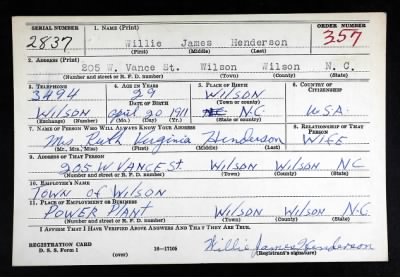 SERIAL NUMBER 1. NAME (Print) ORDER NUMBER
2837 Willie James Henderson 357
(First) (Middle) (Last)
2. ADDRESS (Print)
205 W. Vance St. Wilson Wilson N. C.
(Number and street or R. F. D. number) (Town) (County) (State)
3. TELEPHONE 4. AGE IN YEARS 5. PLACE OF BIRTH 6. COUNTRY OF CITIZENSHIP
3494 29 WILSON
DATE OF BIRTH (Town or county)
WILSON April 20 1911 N.C. U.S.A.
(Exchange) (Number) (Mo.) (Day) (Yr.) (State or country)
7. NAME OF PERSON WHO WILL ALWAYS KNOW YOUR ADDRESS 8. RELATIONSHIP OF THAT PERSON
Mrs Ruth Virginia Henderson WIFE
(Mr., Mrs., Miss) (First) (Middle) (Last)
9. ADDRESS OF THAT PERSON
205 W VANCE St WILSON WILSON NC
(Number and street or R. F. D. number) (Town) (County) (State)
10. EMPLOYER'S NAME
TOWN OF WILSON
11. PLACE OF EMPLOYMENT OR BUSINESS
POWER PLANT WILSON WILSON N.C.
(Number and street or R. F. D. number) (Town) (County) (State)
I AFFIRM THAT I HAVE VERIFIED ABOVE ANSWERS AND THAT THEY ARE TRUE.
REGISTRATION CARD
D. S. S. Form 1 16-17105 Willie James Henderson
(Registrant's signature)